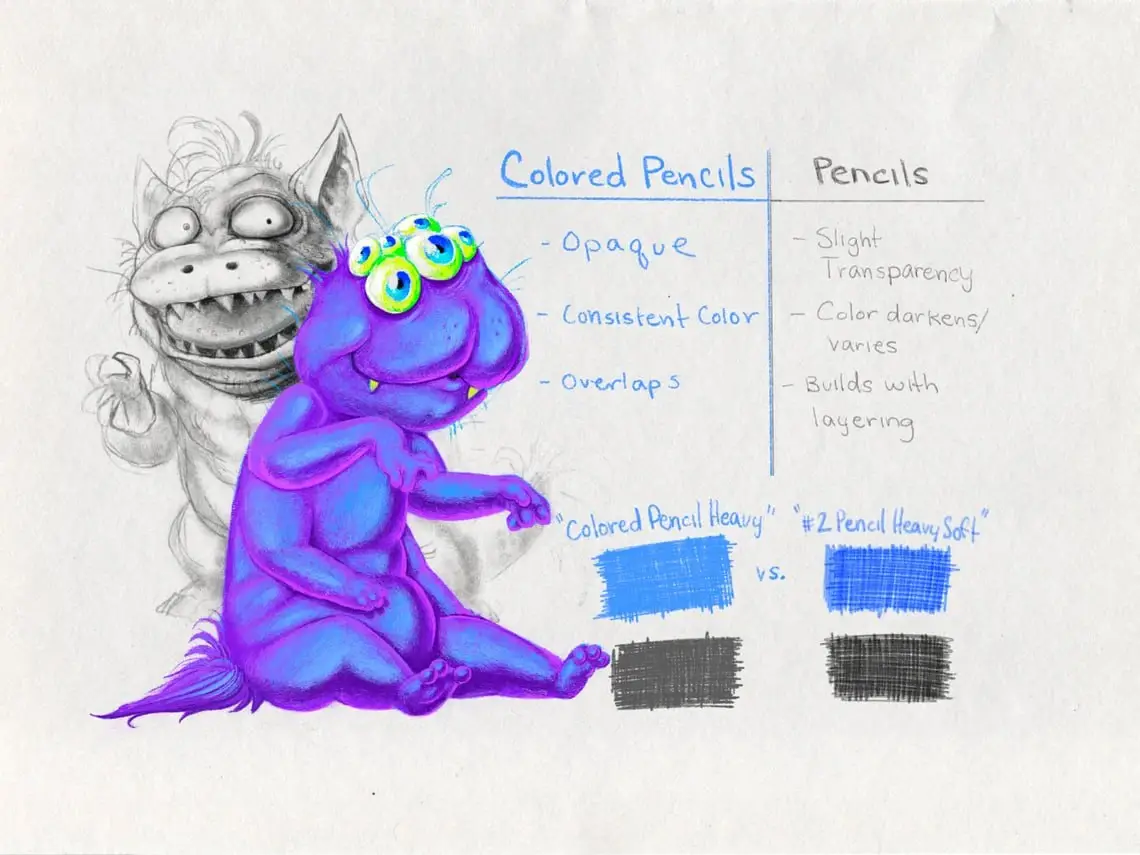 Colored Pencils
- Opaque
- Consistent Color
- Overlaps
Pencils
- Slight
Transparency
- Color darkens/
varies
- Builds with
layering
"Colored Pencil Heavy"
vs.
"#2 Pencil Heavy Soft"